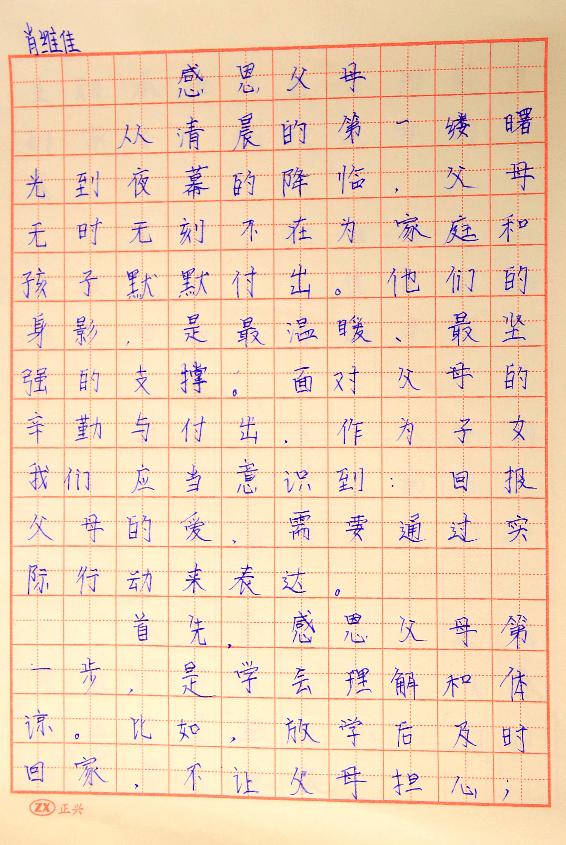 肖维佳
感恩父母
从清晨的第一缕曙
光到夜幕的降临，父母
无时无刻不在为家庭和
孩子默默付出。他们的
身影，是最温暖、最坚
强的支撑。面对父母的
辛勤与付出，作为子女
我们应当意识到：回报
父母的爱，需要通过实
际行动来表达。
首先，感恩父母第
一步，是学会理解和体
谅。比如，放学后及时
回家，不让父母担心；
ZX 正兴